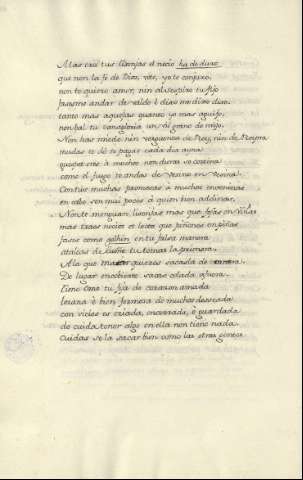 Mas con tus lisonjas el necio ha de duro
que non la fe de Dios, vete, yo te conjuro.
non te quiero amor, nin
façesme andar de valde è dias
tanto mas aquejas quanto yo mas aquijo.
non val tu vanagloria un vil grano de mijo.
Non has miedo nin vergüenza de Rey, nin de Reyna
mudas te dò te pagas cada dia ayna
quepet me à muchos non durás so cosina
como el fuego te andas de vesina en vesina.
Con tus muchas promesas à muchos envelinas
en cabo son muy pocos à quien bien adelinas.
Non te menguan lisonjas mas que fojas en viñas
mas traes necios et locos que piñones en piñas
faces como golhin en tu falsa manera
atalayas de luene tu tomas la primera
A la que matar quieres sacasla de carrera.
De lugar encobierto sacas celada afuera.
Tiene ome tu fija de corazon amada
lozana è bien fermosa de muchos deseada
con vicios es criada, encerrada, è guardada
dò cuida tener algo en ella non tiene nada.
Cuidas se la sacar bien como las otras gentes